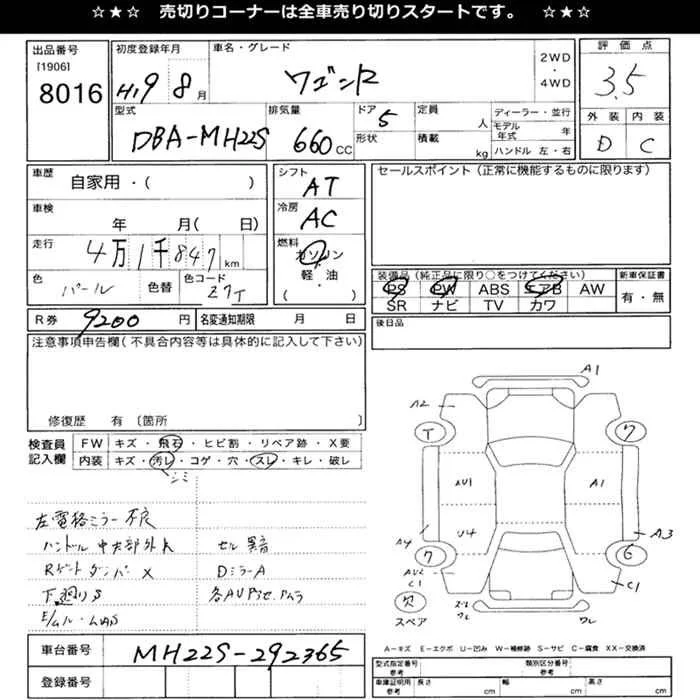 ☆★☆ 売切りコーナーは全車売り切りスタートです。 ☆★☆
出品番号 初度登録年月 車名・グレード 2WD・4WD 評価点
[1906]
8016 H19 8月 ワゴンR 3.5
型式 排気量 ドア 定員 人 ディーラー・並行 外装 内装
DBA-MH22S 660CC 5 形状 積載 kg モデル年式 年 D C
ハンドル 左・右
車歴 自家用・( ) シフト AT セールスポイント(正常に機能するものに限ります)
車検 年 月( 日) 冷房 AC
走行 4万1千847km 燃料 ガソリン・軽・油・( )
色 パール 色替 色コード Z7T
装備品(純正品に限り○をつけてください) 新車保証書
PS PW ABS エアB AW 有・無
SR ナビ TV カワ
R券 9200円 名変通知期限 月 日 後日品
注意事項申告欄(不具合内容等は具体的に記入して下さい)
修復歴 有〔箇所 〕
検査員記入欄 FW キズ・飛石・ヒビ割・リペア跡・X要
内装 キズ・汚レ・コゲ・穴・スレ・キレ・破レ
シミ
左電格ミラー不良
ハンドル中央部外れ セル異音
Rゲートダンパー X DミラーA
下廻りS
A1
A2
T ワ
AU1 A1
U4
A4 A3
7 6
AU2
C1 C1
欠
スペア
A-キズ E-エクボ U-凹み W-補修跡 S-サビ C-腐食 XX-交換済
車台番号 MH22S-292365
登録番号
型式指定番号 参考 類別区分番号 参考
車庫証明用 参考 長さ cm 幅 cm 高さ cm